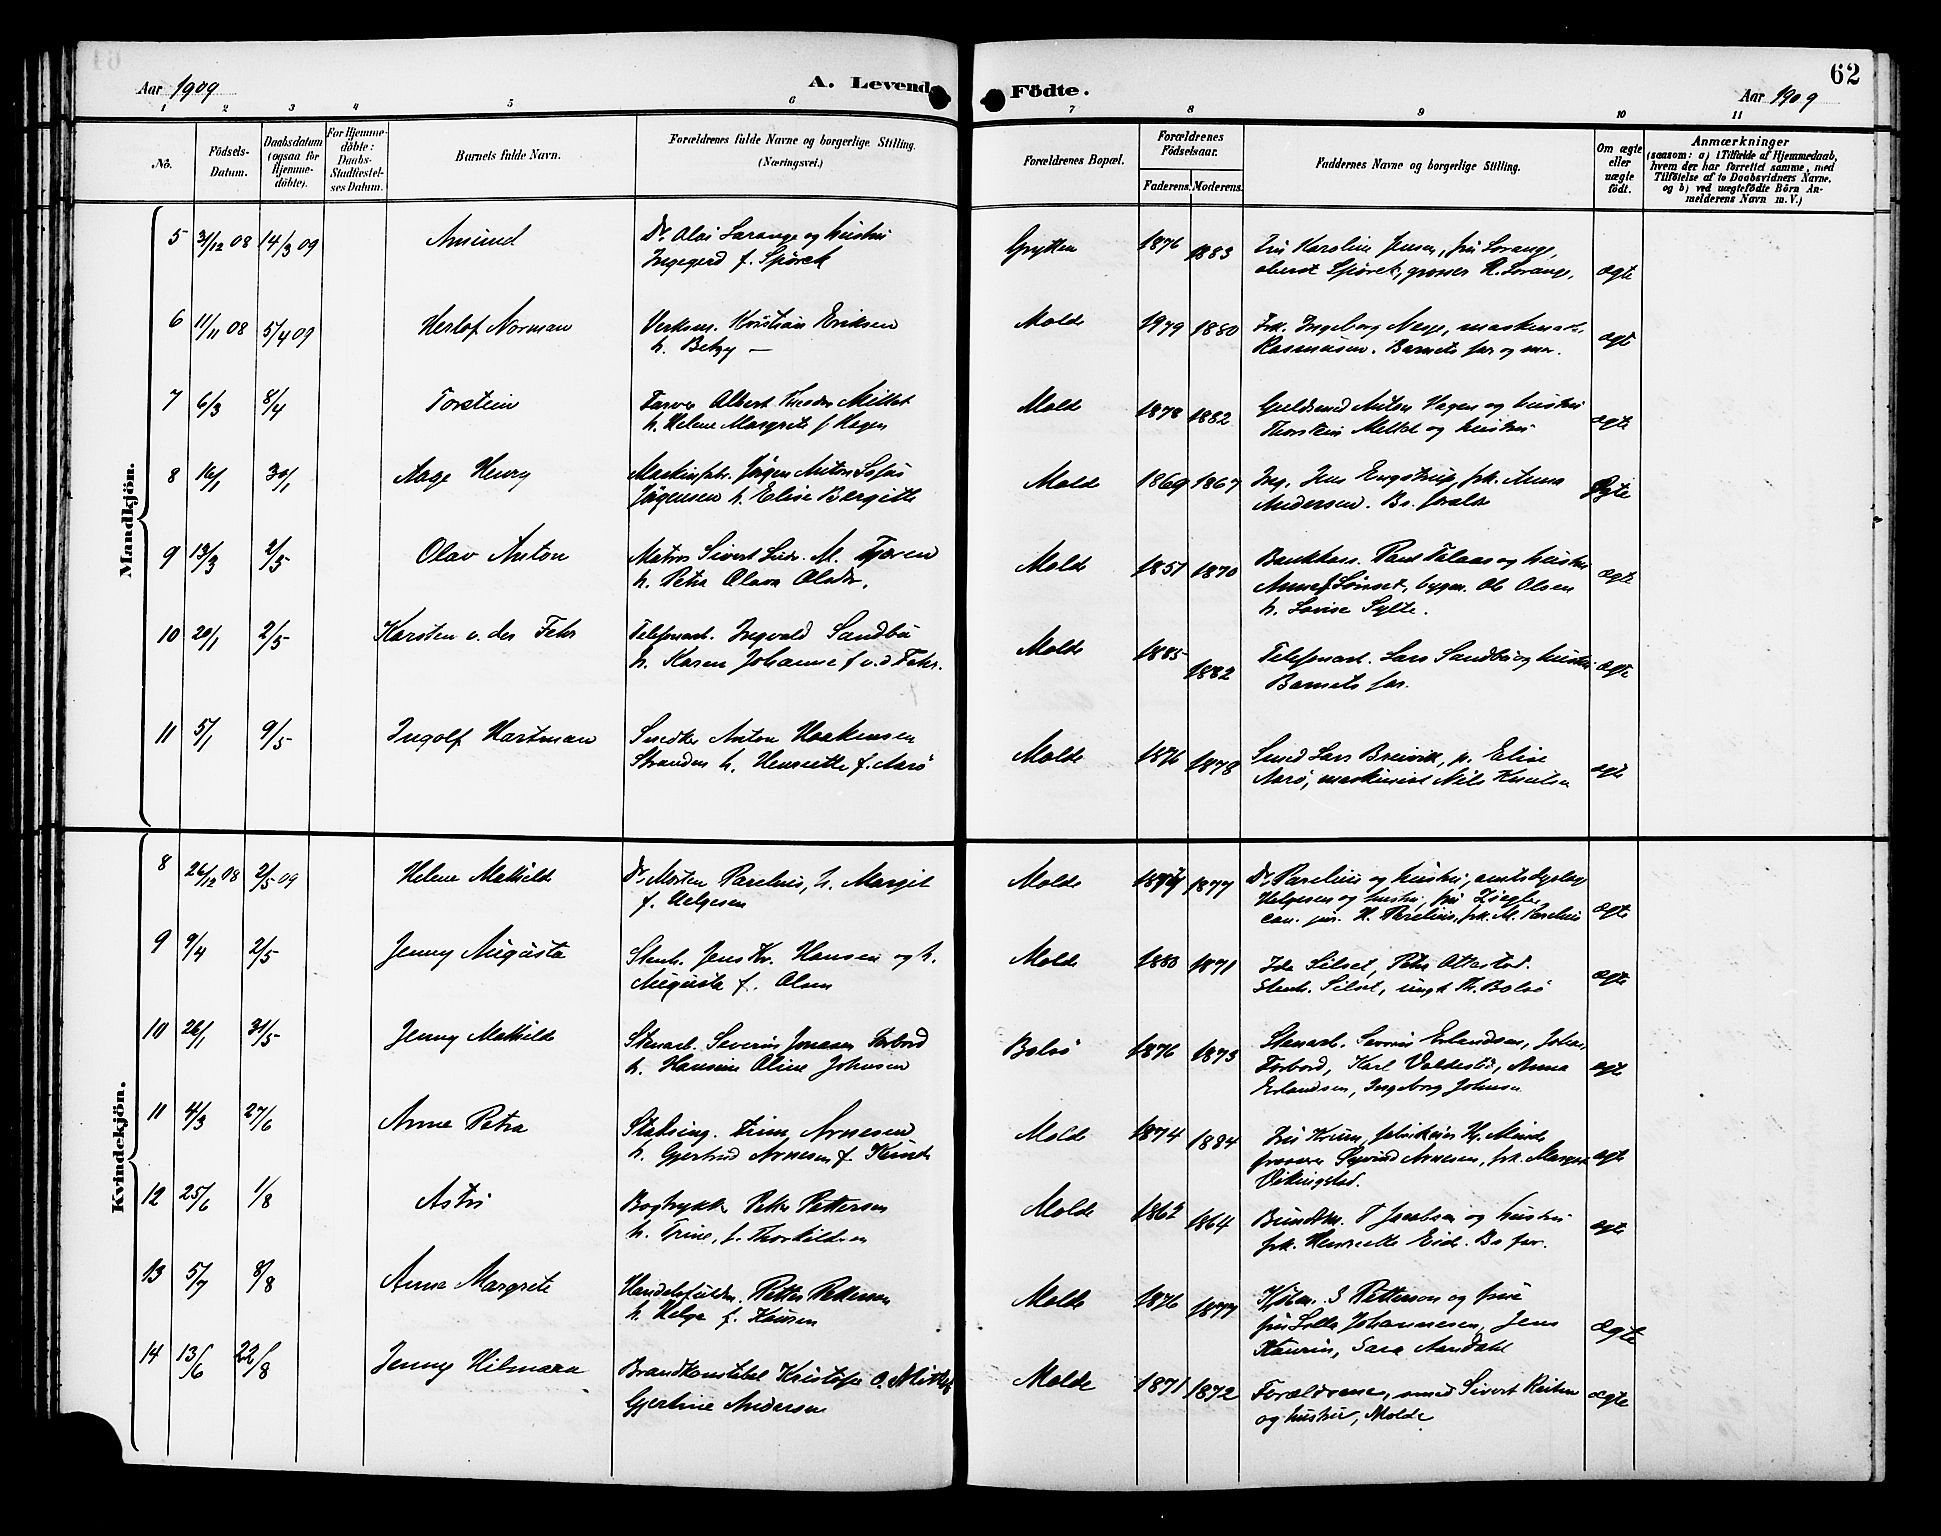 Aar 1909
A. Levende Födte.
62
Aar 1909
1 2 3 4 5 6 7 8 9 10 11
No.
Födsels-Datum.
Daabsdatum (ogsaa for Hjemme-döbte).
For Hjemme-döbte: Daabs-Stadfæstel-ses Datum.
Barnets fulde Navn.
Forældrenes fulde Navne og borgerlige Stilling. (Næringsvei.)
Forældrenes Bopæl.
Forældrenes Födselsaar.
Faderens. Moderens.
Faddernes Navne og borgerlige Stilling.
Om ægte eller uægte födt.
Anmærkninger
(saasom: a) i Tilfælde af Hjemmedaab, hvem der har forrettet samme, med Tilföielse af to Daabsvidners Navne, og b) ved uægtefödte Börn An-melderens Navn m. V.)
Mandkjön.
5 31/12 08 14/3 09 Amund
Dr. Olai Lorange og hustru
Ingegerd f. Spörck
Grytten 1876 1883
Fru Karoline Jensen, fru Lorange,
oberst Spörck, grosser R. Lorange,
ægte
6 11/11 08 5/4 09 Herlof Norman
Verksm. Kristian Eriksen
h. Betzy —
Molde 1979 1880
Frk. Ingeborg
Rasmussen. Barnets far og mor.
ægte
7 6/3 8/4 Torstein
Farver Albert Meltet
h. Helene Margrete f Hagen
Molde 1878 1882
Guldsmed Anton Hagen og hustru
Thorstein Meltet og hustru
ægte
8 16/1 30/1 Aage Henry
Maskinfabr. Jörgen Anton Sofus
Jörgensen h. Elise Bergitte
Molde 1869 1867
Ing. Jens Engstrup, frk. Anna
Andersen. Bs. foreldre
Ægte
9 13/3 2/5 Olav Anton
Matros Sivert M. Tjæren
h. Petra Olava
Molde 1851 1870
Bankkass. og hustru
Anna f. Lönset, bygm. Ole Olsen
h. Lovise Sylte.
ægte
10 20/1 2/5 Karsten v. der Fehr
Telefonarb. Ingvald Sandbu
h. Karen Johanne f v. d Fehr.
Molde 1885 1882
Telefonarb. Lars Sandbu og hustru
Barnets far.
ægte
11 5/1 9/5 Ingolf Hartman
Snedker Anton Haakensen
Stranden h. Henriette f. Aarö
Molde 1876 1878
Smed Lars Breivik, p. Elise
Aarö, maskinist Nils Knutsen
ægte
Kvindekjön.
8 26/12 08 2/5 09 Helene Mathilde
Dr. Morten Parelius, h. Margit
f. Helgesen
Molde 1877
Dr. Parelius og hustru, amtsdyrlæge
Helgesen og hustru, fru Ziegler
can. jur. H. Parelius, frk. M. Parelius
ægte
9 9/4 2/5 Jenny Augusta
Stenh. Jens Kr. Hansen og h.
Augusta f. Olsen
Molde 1880 1871
Ida Silset, Petra Ottestad.
Stenh. Silset, ungk Th. Bolsö
ægte
10 26/1 31/5 Jenny Mathilde
Stenarb. Severin Jonasen Forbord
h. Hansine Oline Johnsen
Bolsö 1876 1873
Stenarb. Severin Erlandsen, Johan
Forbord, Karl Anna
Erlandsen, Ingeborg Johnsen
ægte
11 4/3 27/6 Anne Petra
Stadsing. Finn Arnesen
h. Gjertrud Arnesen f. Kunde
Molde 1874 1884
Fru Krum,
Arnesen, frk. Margit
Vikingstad.
ægte
12 25/6 1/8 Astri
Bogtrykker Petter Petterson
h. Trine, f. Thorkildsen
Molde 1862 1864
Buntm. P Jacobsen og hustru
frk. Henriette Eide. Bs far.
ægte
13 5/7 8/8 Anna Margrete
Handelsfuldm. Petter Petterson
h. Helga f. Hansen
Molde 1876 1877
Kjöbm. S Petterson og frue
fru Johannesen, Jens
Sara Aandahl
ægte
14 13/6 22/8 Jenny Hilmara
Brandkonstabel Kristofer O.
Gjertine Andersen
Molde 1871 1872
Forældrene, smed Sivert Reiten
og hustru, Molde
ægte